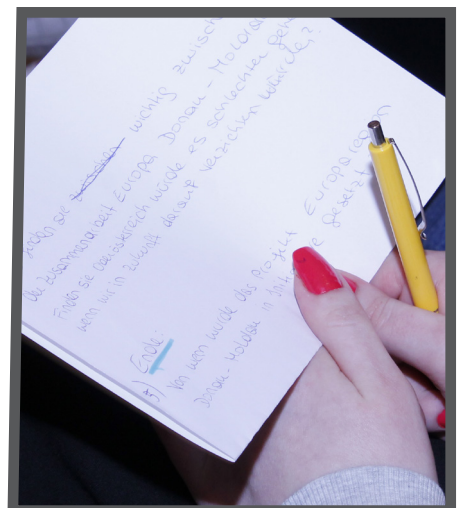 sie zwischen wichtig zwisch
der Zusammenarbeit Europa Donau - Moldau
Finden sie Oberösterreich würde es schlechter geh
wenn wir in Zukunft darauf verzichten würden?
Ende:
5) Von wem wurde das Projekt Europaregion
Donau - Moldau in gesetzt